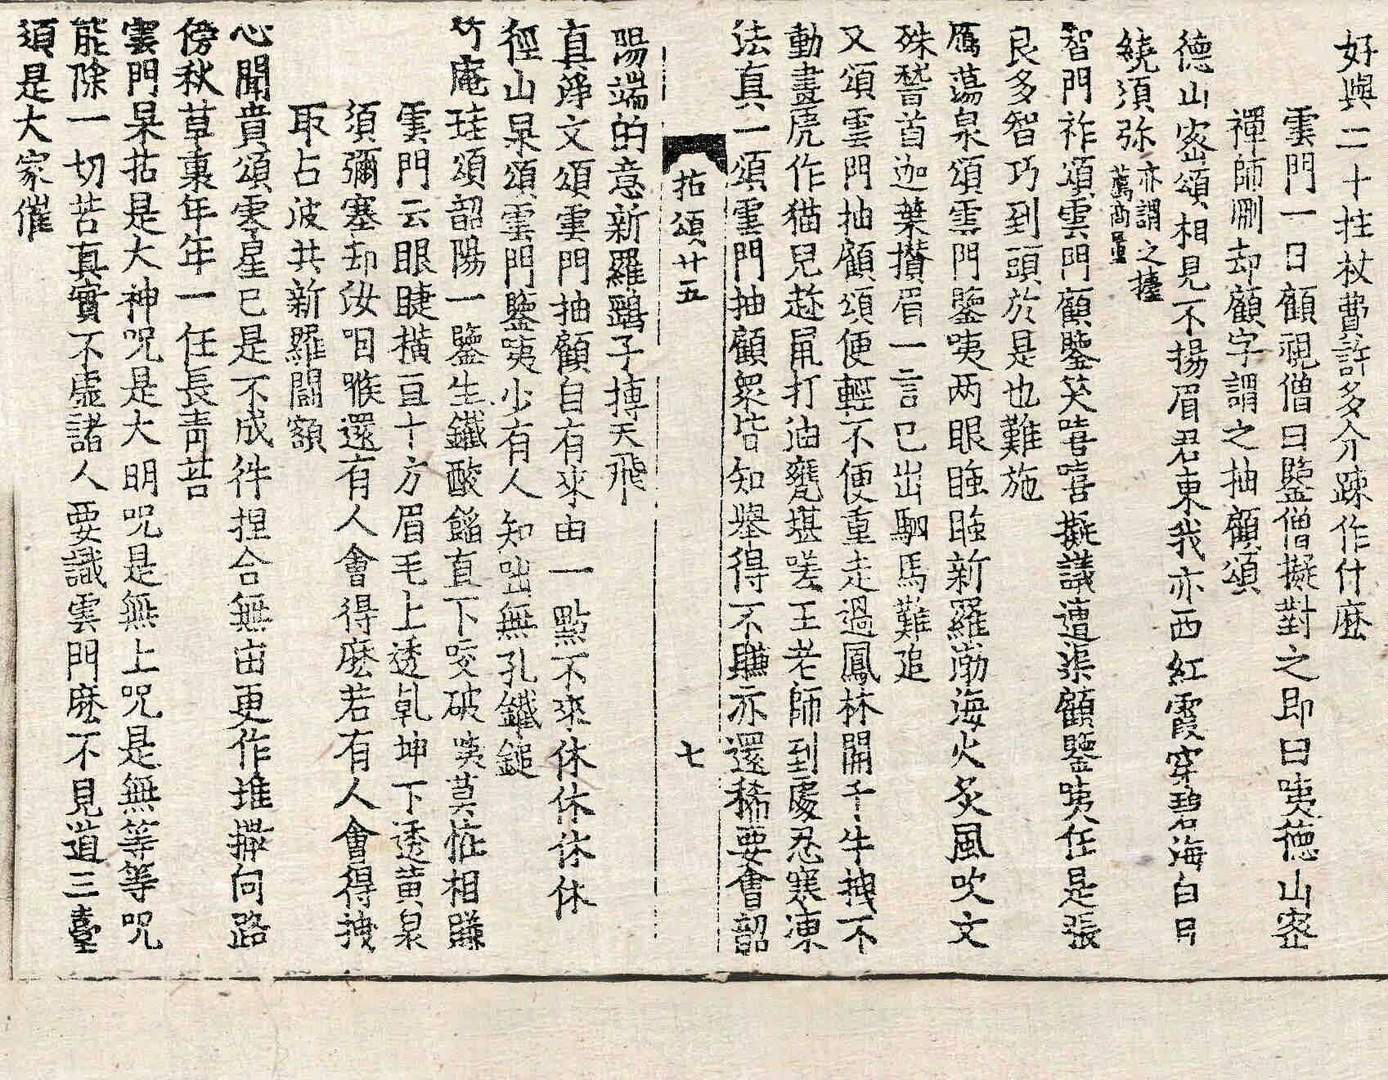 好與二十拄杖費許多介疎作什麽
雲門一日顧視僧曰鑒僧擬對之即曰咦德山密
禪師刪却顧字謂之抽顧頌
德山密頌相見不揚眉君東我亦西紅霞穿碧海白日
繞須弥亦謂之擡
薦商量
智門祚頌雲門顧鑒笑嘻嘻擬議遭渠顧鑒咦任是張
良多智巧到頭於是也難施
鴈蕩泉頌雲門鑒咦两眼眵眵新羅渤海火炙風吹文
殊䭫首迦葉攅眉一言已出駟馬難追
又頌雲門抽顧頌便輕不便重走過鳳林關予牛拽不
動畫虎作猫兒趂鼠打油甕堪嗟王老師到處忍寒凍
法真一頌雲門抽顧衆皆知舉得不賺亦還稀要會韶
拈頌廿五
七
陽端的意新羅鷂子摶天飛
真淨文頌雲門抽顧自有來由一點不來休休休休
徑山杲頌雲門鑒咦少有人知咄無孔鐵鎚
竹庵珪頌韶陽一鑒生鐵酸餡直下咬破咦莫恠相賺
雲門云眼睫橫亘十方眉毛上透乹坤下透黃泉
須彌塞却汝咽喉還有人會得麽若有人會得拽
取占波共新羅鬪額
心聞賁頌零星已是不成件捏合無由更作堆擲向路
傍秋草裏年年一任長靑苔
雲門杲拈是大神呪是大明呪是無上呪是無等等呪
能除一切苦真實不虚諸人要識雲門麽不見道三臺
須是大家催